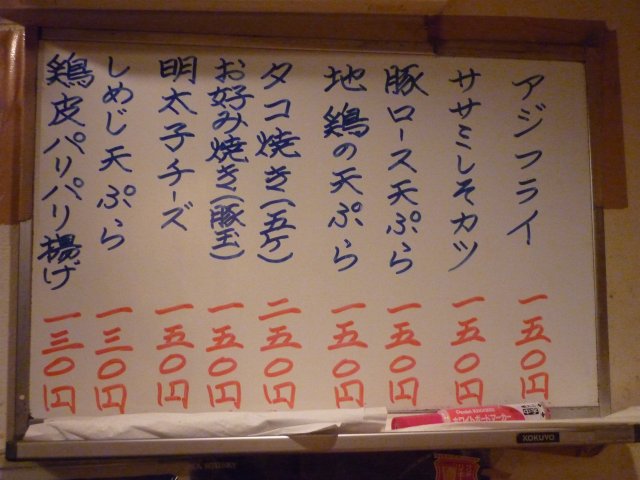 アジフライ 一五〇円
ササミしそカツ 一五〇円
豚ロース天ぷら 一五〇円
地鶏の天ぷら 一五〇円
タコ焼き(五ケ) 二五〇円
お好み焼き(豚玉) 一五〇円
明太子チーズ 一五〇円
しめじ天ぷら 一三〇円
鶏皮パリパリ揚げ 一三〇円
ホワイトボードマーカー
KOKUYO